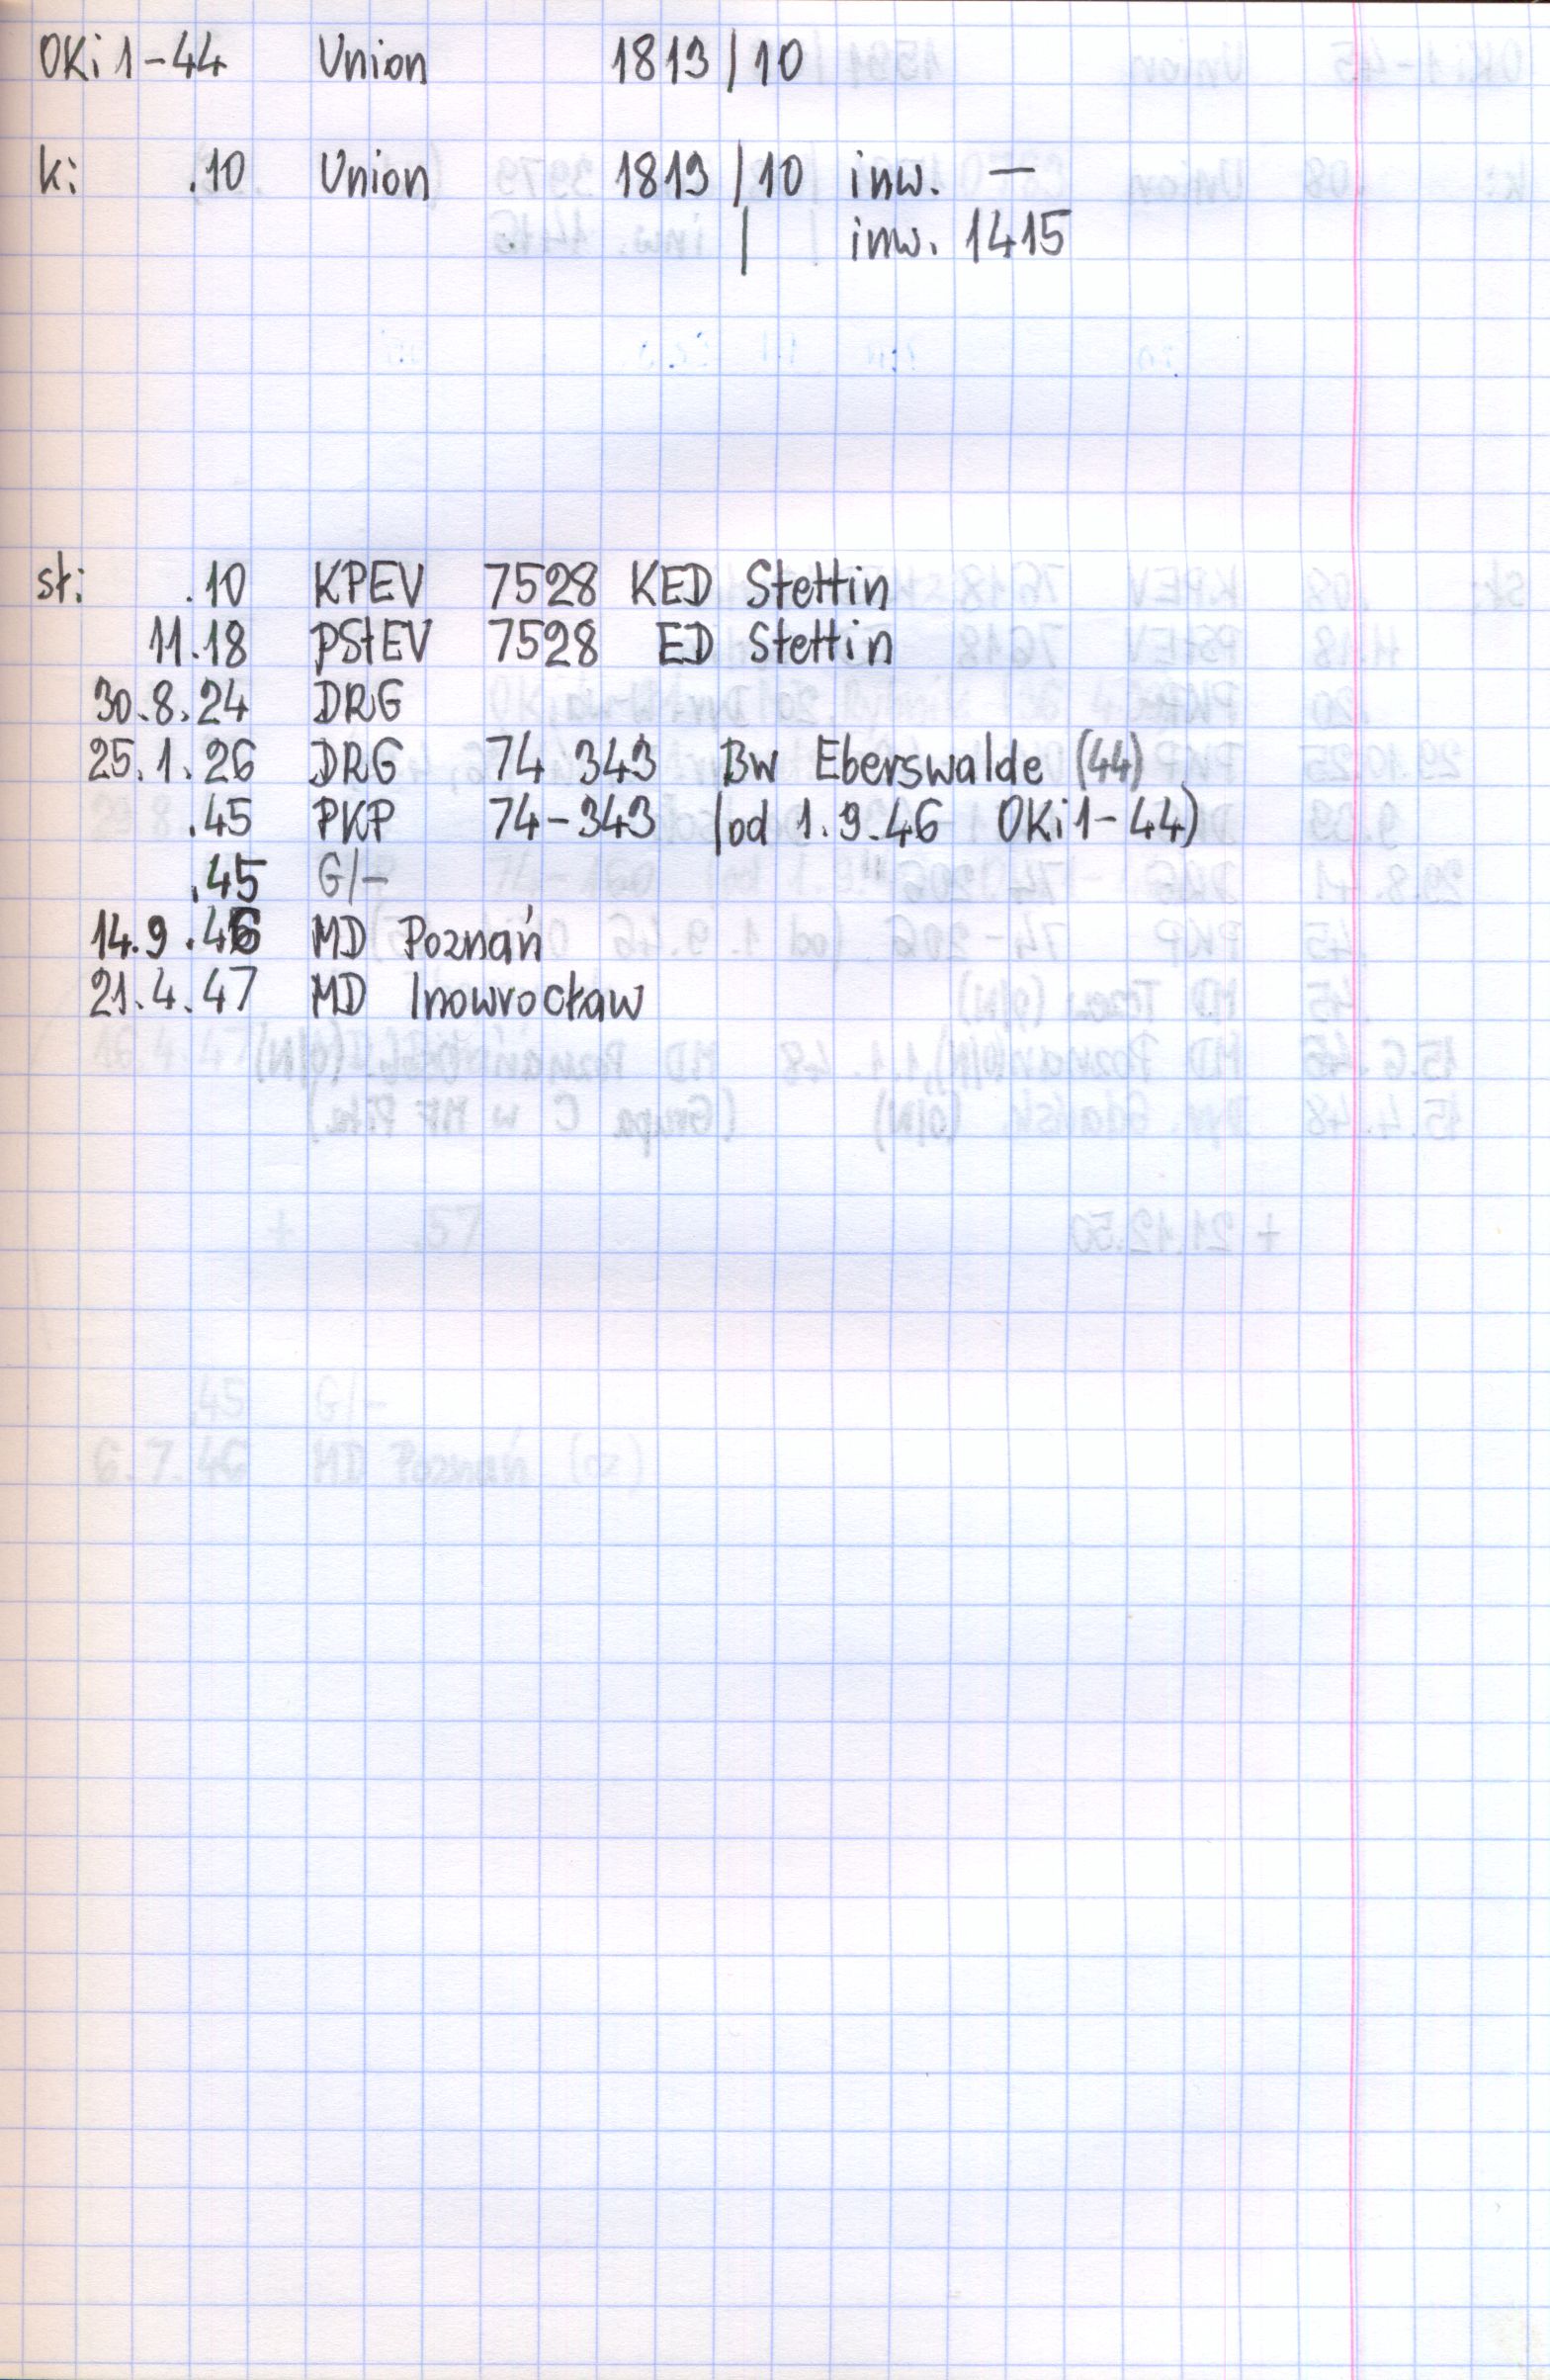 OKi 1-44 Union 1813/10
k: .10 Union 1813/10 inw. —
| inw. 1415
sł: .10 KPEV 7528 KED Stettin
11.18 PStEV 7528 ED Stettin
30.8.24 DRG
25.1.26 DRG 74 343 Bw Eberswalde (44)
.45 PKP 74-343 (od 1.9.46 OKi 1-44)
.45 G/-
14.9.46 MD Poznań
21.4.47 MD Inowrocław
+ .57
.45 G/-
6.7.46 MD Poznań